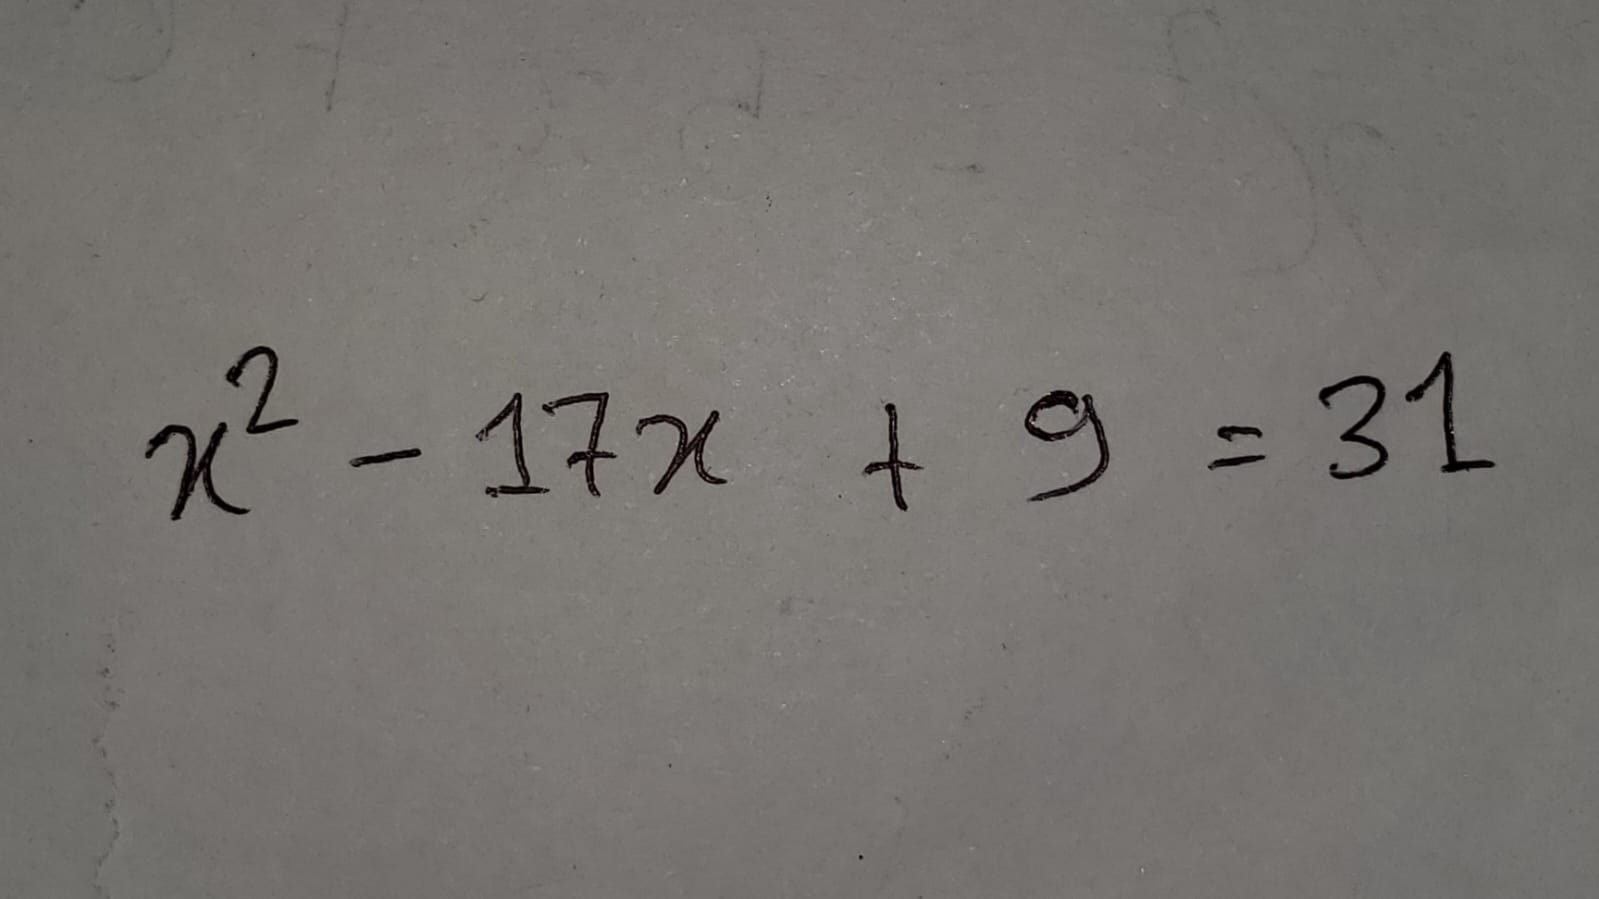 x² - 17x + 9 = 31